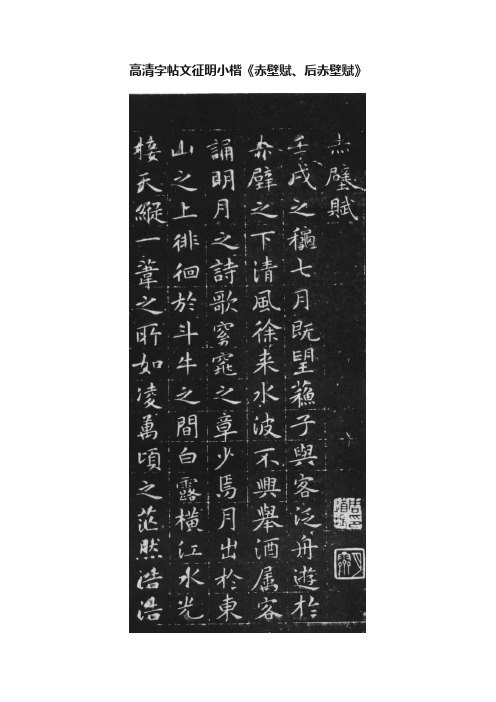 高清字帖文征明小楷《赤壁赋、后赤壁赋》
赤壁賦
壬戌之龝七月既望蘓子與客泛舟遊於
赤壁之下清風徐来水波不興舉酒属客
誦明月之詩歌窈窕之章少焉月出於東
山之上徘徊於斗牛之間白露橫江水光
接天縱一葦之所如凌萬頃之茫然浩浩